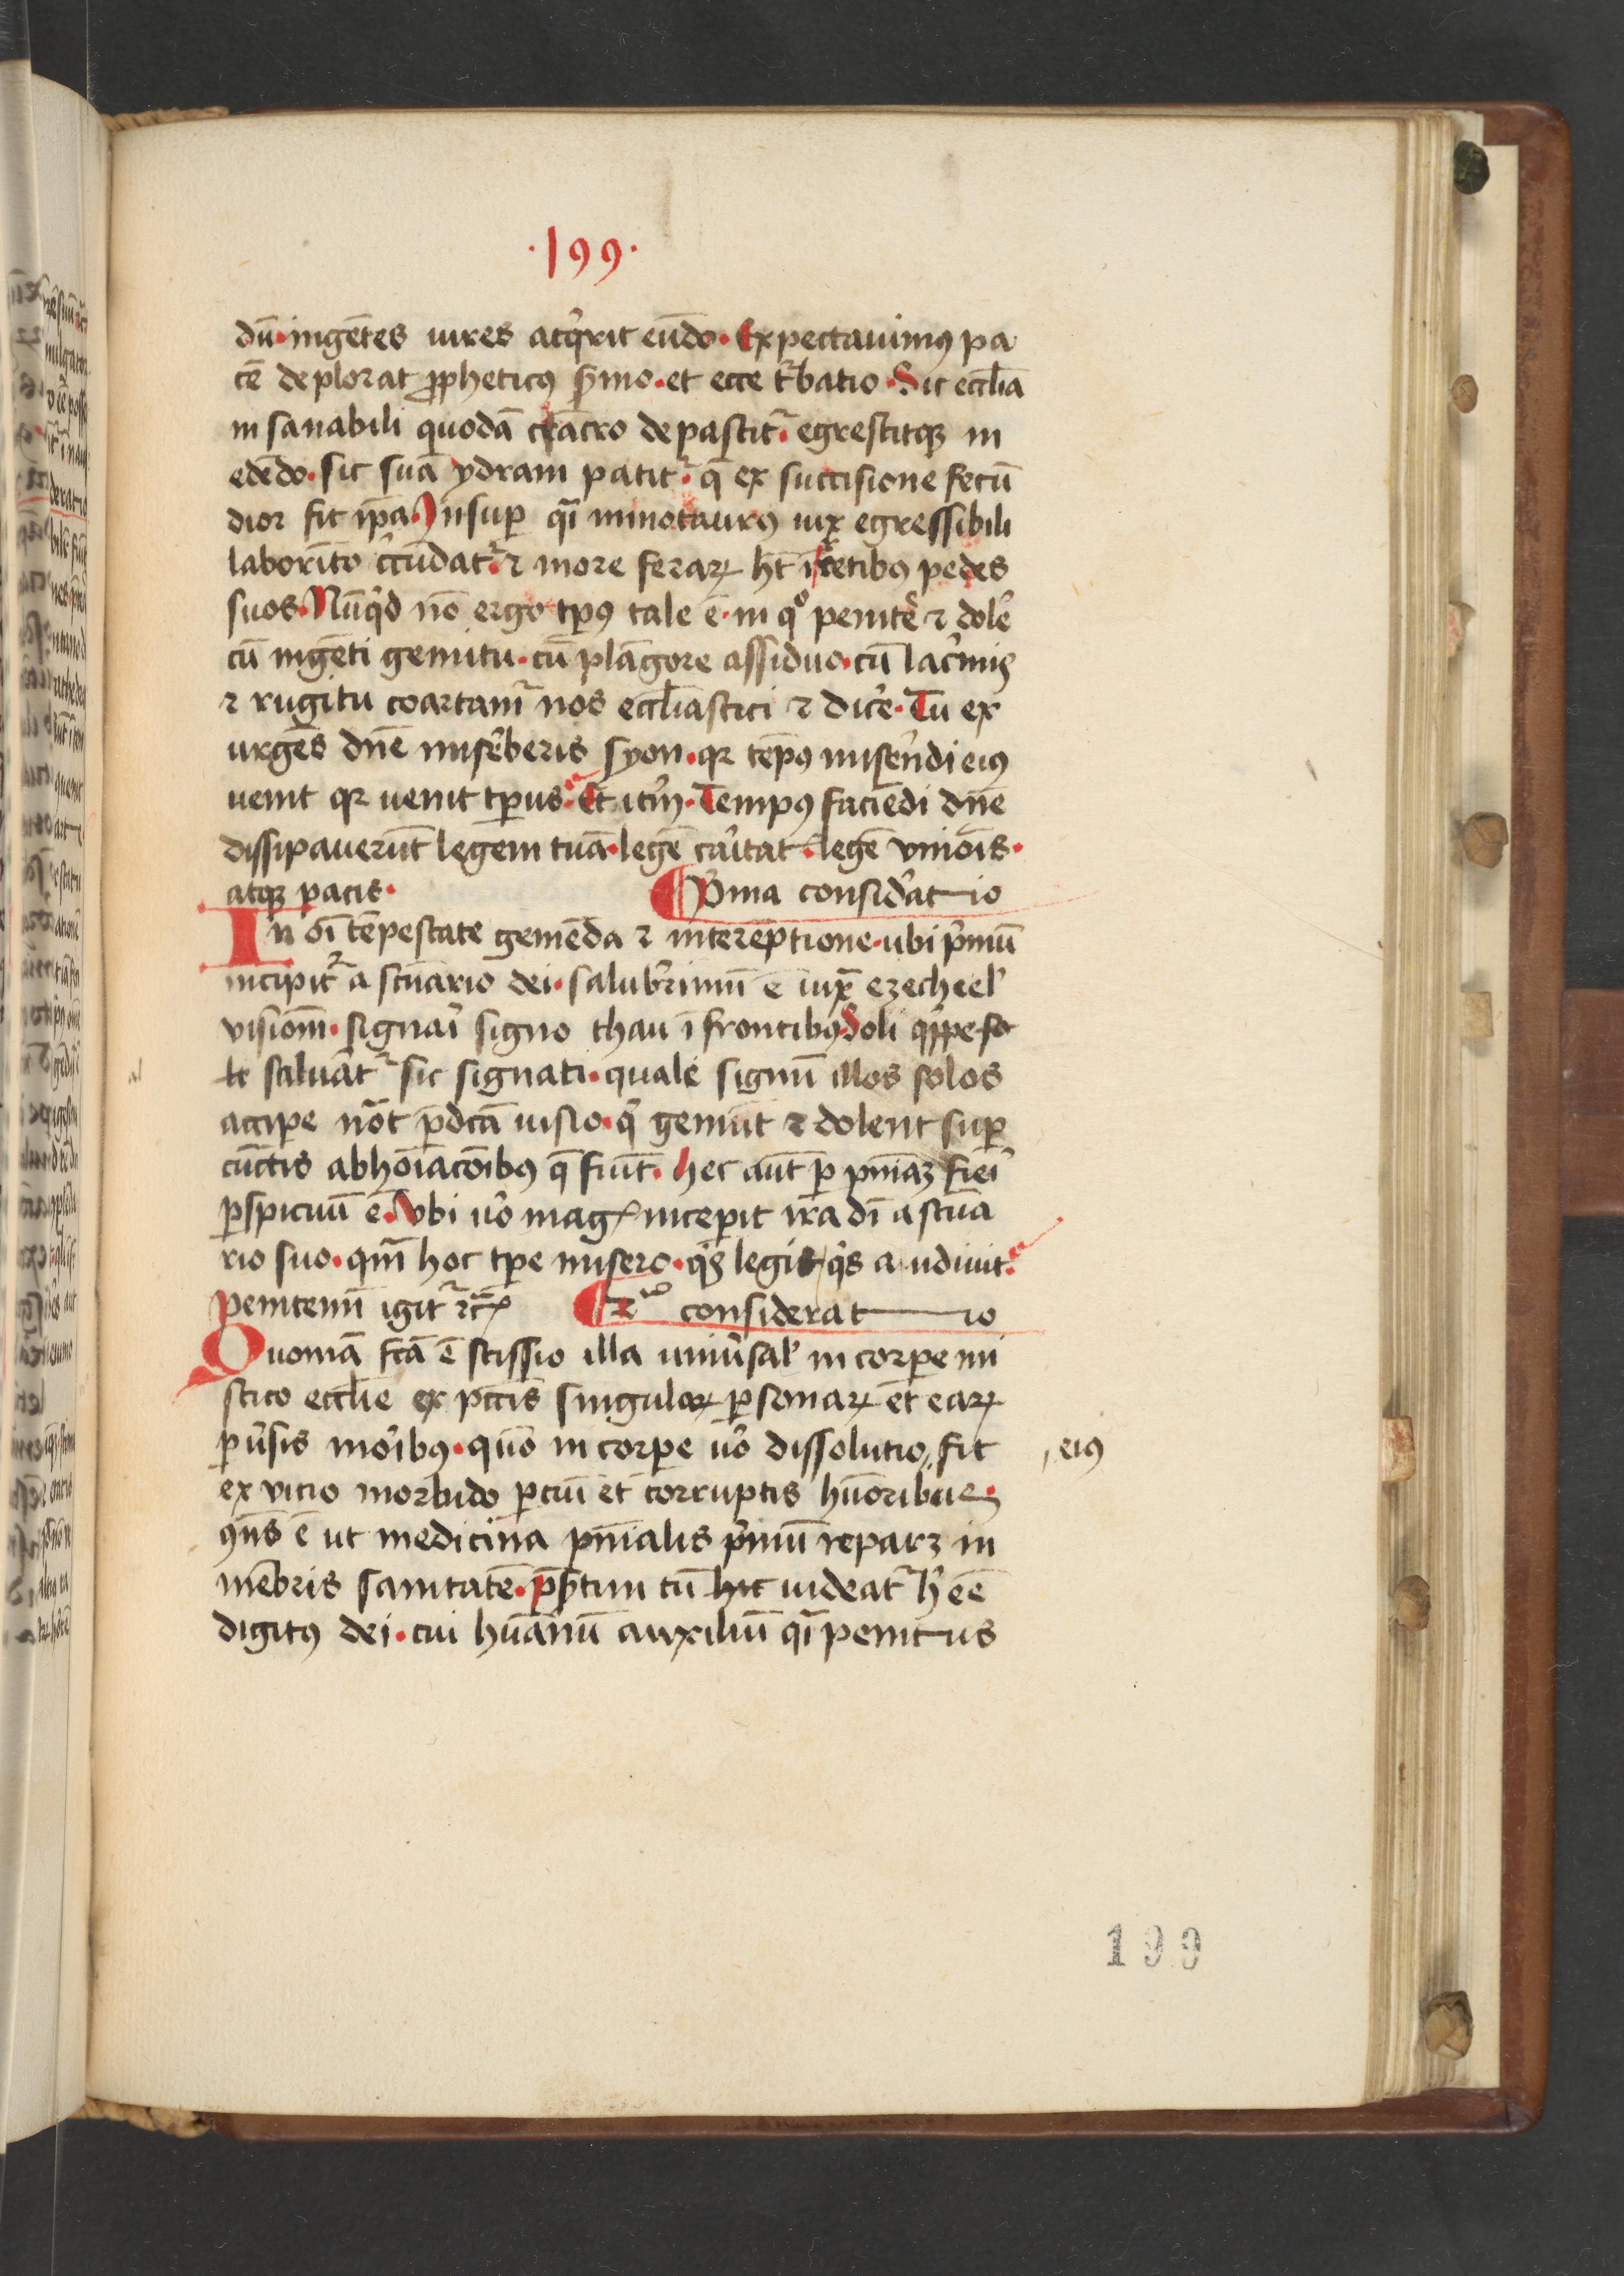 ·199·
dū·ingētes uires acq̉rit eūdo·Expectauimꝰ pa
cē deplorat ꝓpheticꝰ ẜmo·et ecce t̉batio·Sic eccl̄ia
insanabili quodā cācro depascit᷑·egrescitqꝫ in
edēdo·sic suā ydram patit᷑·q̄ ex succisione fecū
dior fit ip̄a·Insuꝑ qͣi minotaurꝰ iux̄ egressibili
laborīto c̉cūdat᷑·⁊ more feraꝝ hꝫ ī retibꝰ pedes
suos·Nūq̉d nō ergo tꝑꝰ tale ē·in qͦ penit̉e ⁊ dol̉e
cū ingēti gemitu·cū plāgore assiduo·cū lac̉mis
⁊ rugitu coartam᷑ nos eccl̄iastici ⁊ dic̉e·Tu ex
urgēs dn̄e mis̉eberis syon·qꝛ tēpꝰ mis̉endi eiꝰ
uenit qꝛ uenit tꝑus·Et it̉m·Tempꝰ faciēdi dn̄e
dissipauerūt legem tuā·legē cāitat̉·legē vniōis·
atqꝫ pacis· ¶ P̉ma consid̉atio
In oī tēpestate gemēda ⁊ interēptione·ubi p̉mū
incipit᷑ a sc̄uario dei·salub̉rimū ē iux̄ ezechiel̉
visionē·signaỉ signo thau ī frontibꝰ·Soli q̉ppe fo
te saluāt᷑ sic signati·quale signū illos solos
accipe nͦot p̄dc̄a uisio·q̉ gemūt ⁊ dolent suꝑ
cūctis abhoīacōibꝰ q̄ fiūt·hec aūt ꝑ pn̄iaꝫ fieỉ
ꝑspicuū ē·Vbi ủo mag̉ incepit ira dī a sc̄ua
rio suo·qm̄ hoc tꝑe misero·q̉s legit q̉s audiuit·
Penitemī igit᷑ ⁊c̄ ¶ 2ͦ consideratio
Quoniā fc̄a ē scissio illa uniủsal̉ in corꝑe mi
stico eccl̄ie ex pcc̄is singulaꝝ ꝑsonaꝝ et eaꝝ
ꝑủsis mōibꝰ·quō in corꝑe ủo dissolutio fit
eiꝰ
ex vicio morbido ꝑciū et corruptis hūoribus·
ꝯn̄s ē ut medicina pn̄ialis p̉mū reparꝫ in
mēbris sanitatē·p̄s̉tim cū hic uideat᷑ h̉ eē
digitꝰ dei·cui hūanū auxiliū qͣi penitus
199